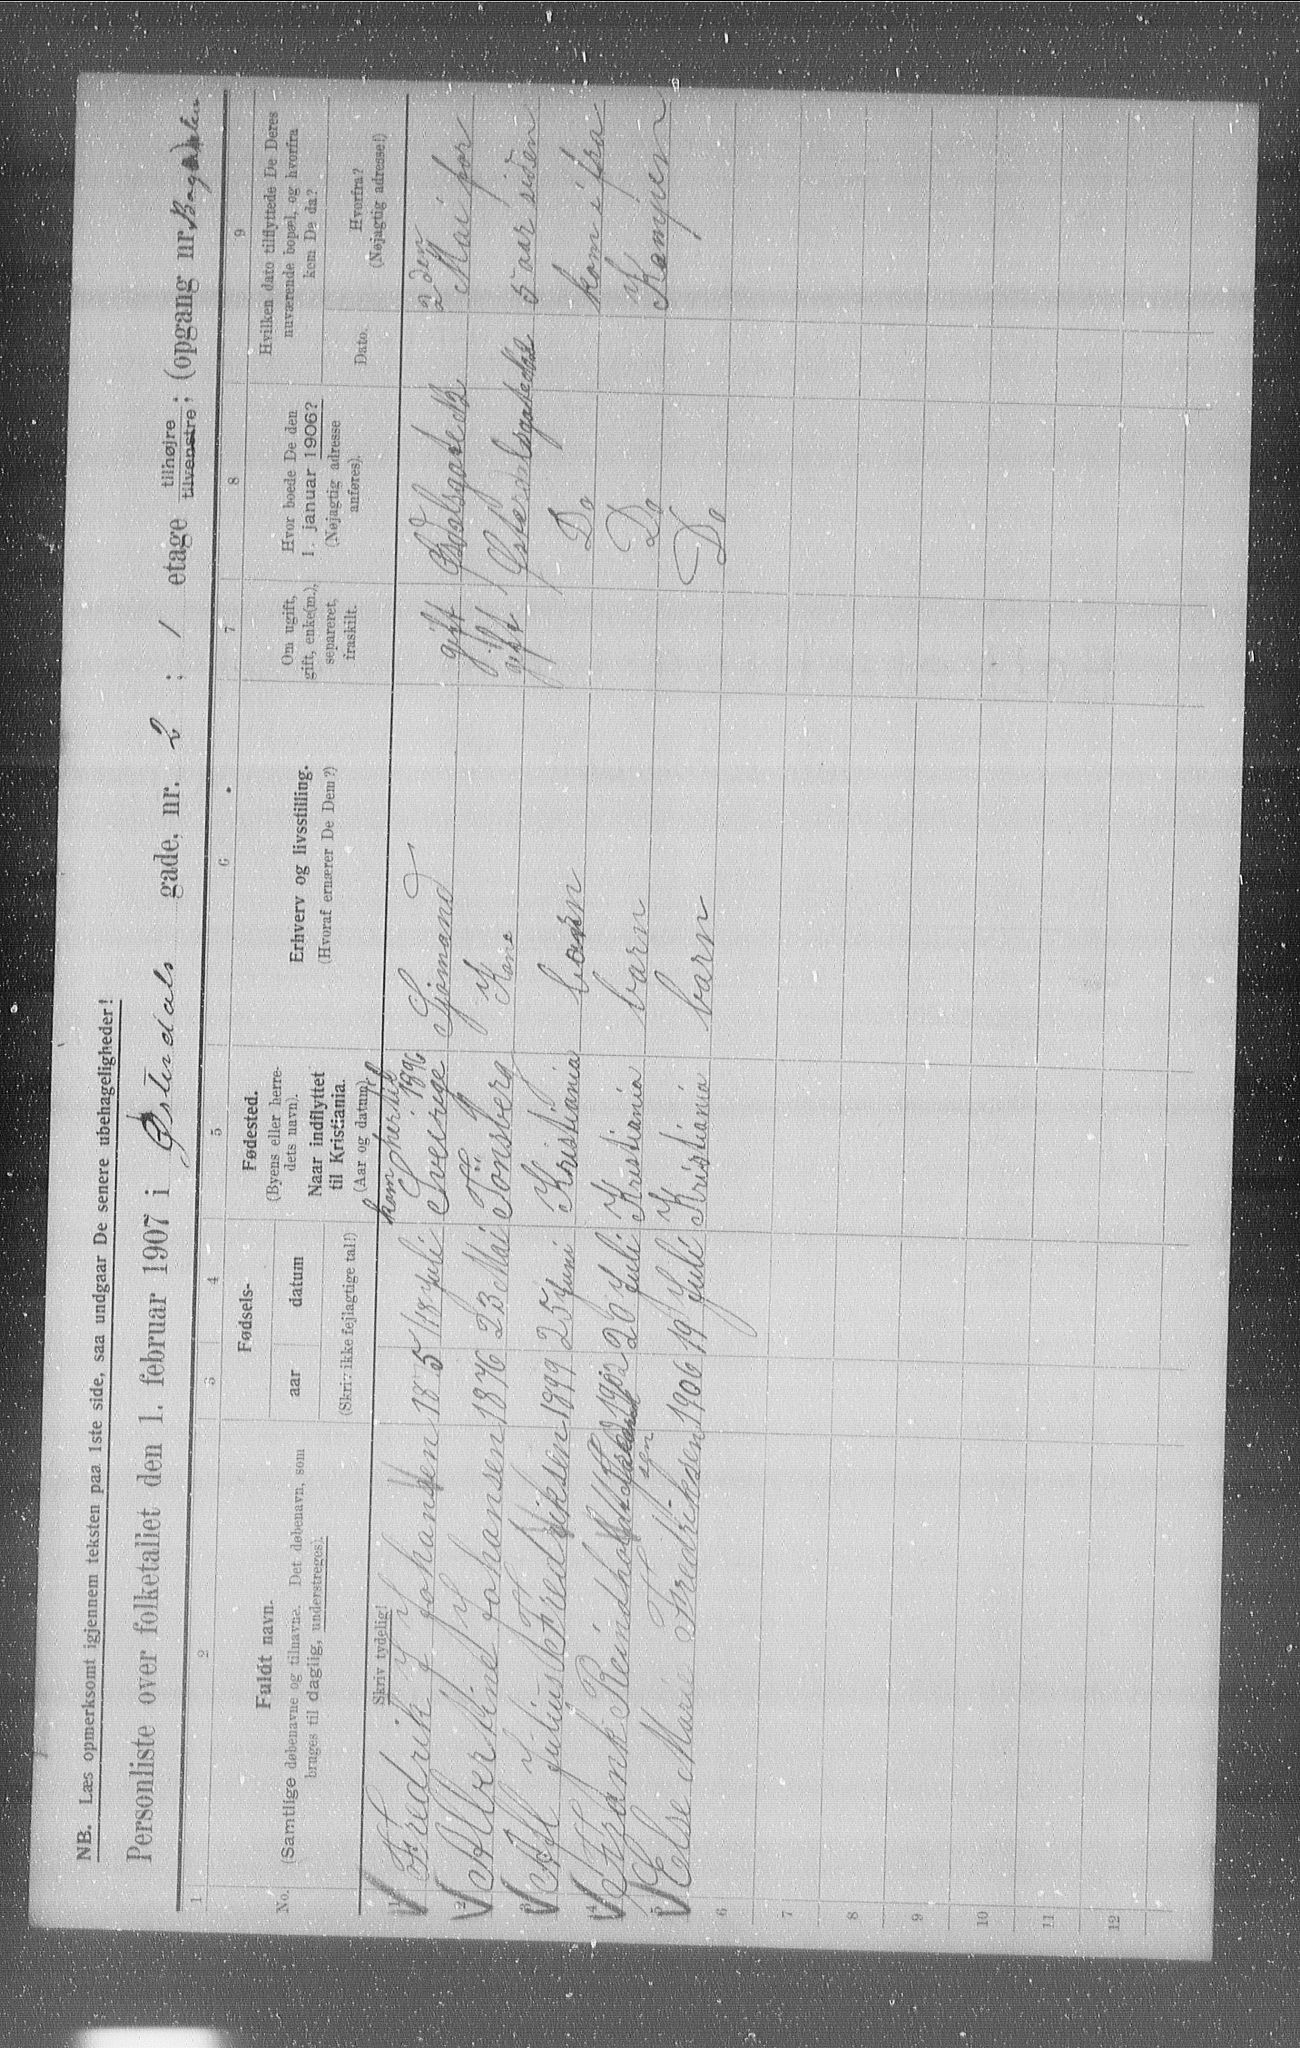 NB. Læs opmerksomt igjennem teksten paa 1ste side, saa undgaar De senere ubehageligheder!
Personliste over folketallet den 1. februar 1907 i Østerdals gade, nr. 2 ; 1 etage tilhøjre tilvenstre; (opgang nr.
1 2 3 4 5 6 7 8 9
No.
Fuldt navn.
(Samtlige døbenavne og tilnavne. Det døbenavn, som
bruges til daglig, understreges).
Skriv tydelig!
Fødsels-
aar datum
(Skriv ikke fejlagtige tal!)
Fødested.
(Byens eller herre-
dets navn).
Naar indflyttet
til Kristiania.
(Aar og datum).
Erhverv og livsstilling.
(Hvoraf ernærer De Dem?)
Om ugift,
gift, enke(m.),
separeret,
fraskilt.
Hvor boede De den
1. januar 1906?
(Nøjagtig adresse
anføres).
Hvilken dato tilflyttede De Deres
nuværende bopæl, og hvorfra
kom De da?
Dato.
Hvorfra?
(Nøjagtig adresse!)
kom her til
1896
1 Fredrik J Johansen 18 5 18 Juli Sverige Sjømand gift 2 den Mai for
2 Johansen 1876 23 Mai Tönsberg Kone gift Østerdalsgade 5 aar siden
3 Julius Fredriksen 1899 25 Juni Kristiania barn Do kom i fra
4 Frank Reindholdt 1902 20 Juli Kristiania barn Do Kampen
5 Else Marie Fredriksen 1906 19 Juli Kristiania barn Do
6
7
8
9
10
11
12